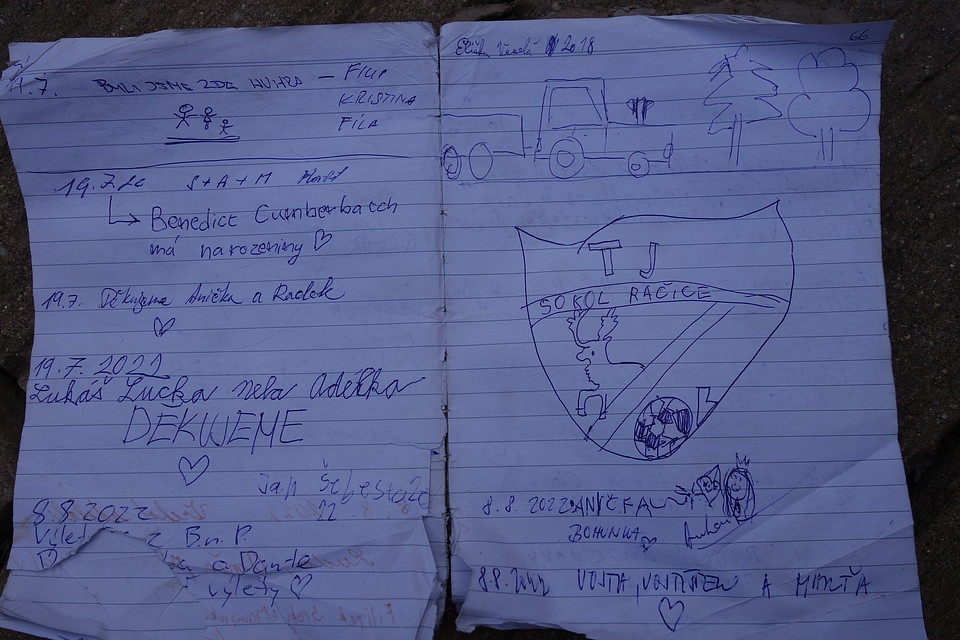 19.7. BYLI JSME ZDE – FILIP
KRISTINA
FÍLA
19.7.20 S+A+M
Benedict Cumberbatch
má narozeniny ♡
19.7. Děkujeme Anička a Radek
♡
19.7.2021
Lukáš Lucka nela Adélka
DĚKUJEME
♡
Jan
22
8.8.2022
Výlet z B.n.P.
a Dante
výlety ♡
Eliška Veselá 2018
66
T J
SOKOL RAČICE
8.8.2022 ANIČKA
BOHUNKA ♡
8.8. VOJTA, A
♡